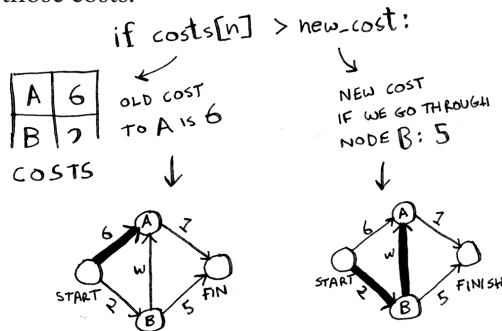 those costs.
if costs[n] > new_cost:
A 6
B 2
COSTS
OLD COST
TO A IS 6
NEW COST
IF WE GO THROUGH
NODE B: 5
6
A
1
W
START
2
B
5
FIN
6
A
1
W
START
2
B
5
FINISH